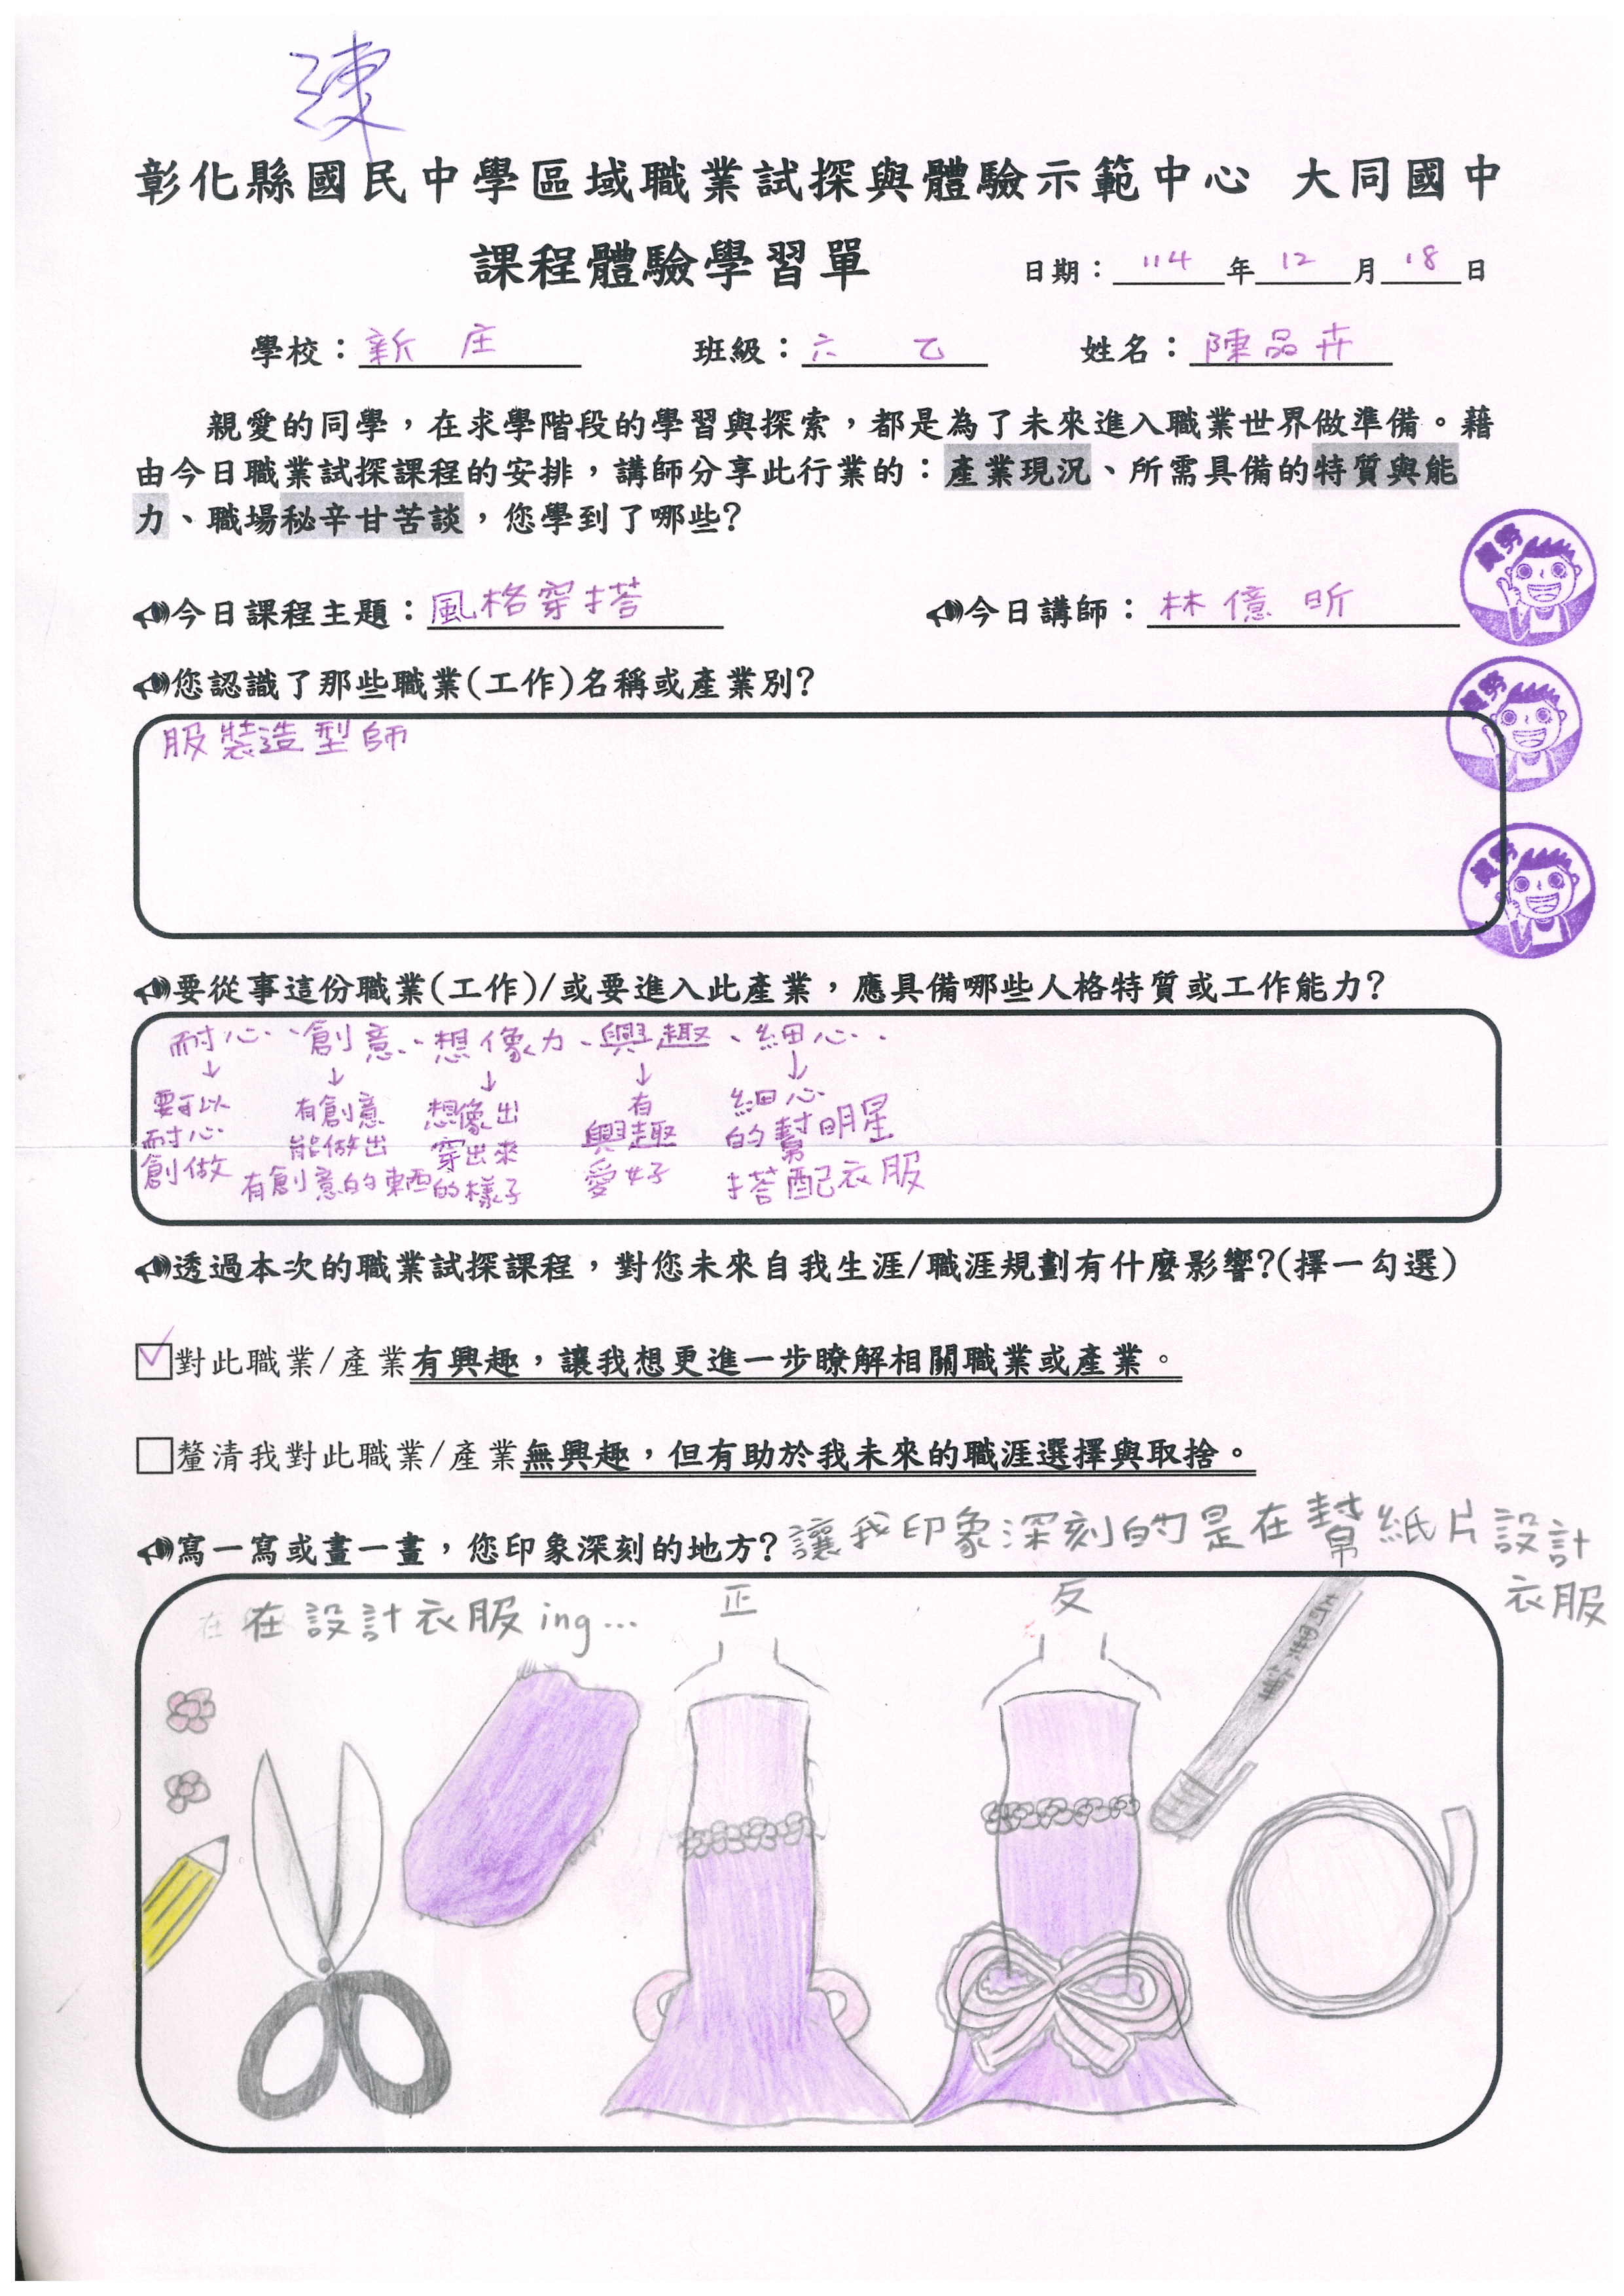 陳
彰化縣國民中學區域職業試探與體驗示範中心 大同國中
課程體驗學習單
日期：114年12月18日
學校：新庄 班級：六乙 姓名：陳品卉
親愛的同學，在求學階段的學習與探索，都是為了未來進入職業世界做準備。藉
由今日職業試探課程的安排，講師分享此行業的：產業現況、所需具備的特質與能
力、職場秘辛甘苦談，您學到了哪些?
今日課程主題：風格穿搭 今日講師：林億昕
您認識了那些職業(工作)名稱或產業別?
服裝造型師
要從事這份職業(工作)/或要進入此產業，應具備哪些人格特質或工作能力?
耐心、創意、想像力、興趣、細心..
↓ ↓ ↓ ↓ ↓
要可以 有創意 想像出 有 細心
耐心 能做出 穿出來 興趣 的幫明星
創做 有創意的東西 的樣子 愛好 搭配衣服
透過本次的職業試探課程，對您未來自我生涯/職涯規劃有什麼影響?(擇一勾選)
☑對此職業/產業有興趣，讓我想更進一步瞭解相關職業或產業。
□釐清我對此職業/產業無興趣，但有助於我未來的職涯選擇與取捨。
寫一寫或畫一畫，您印象深刻的地方? 讓我印象深刻的是在幫紙片設計
衣服
在設計衣服ing...
正
反